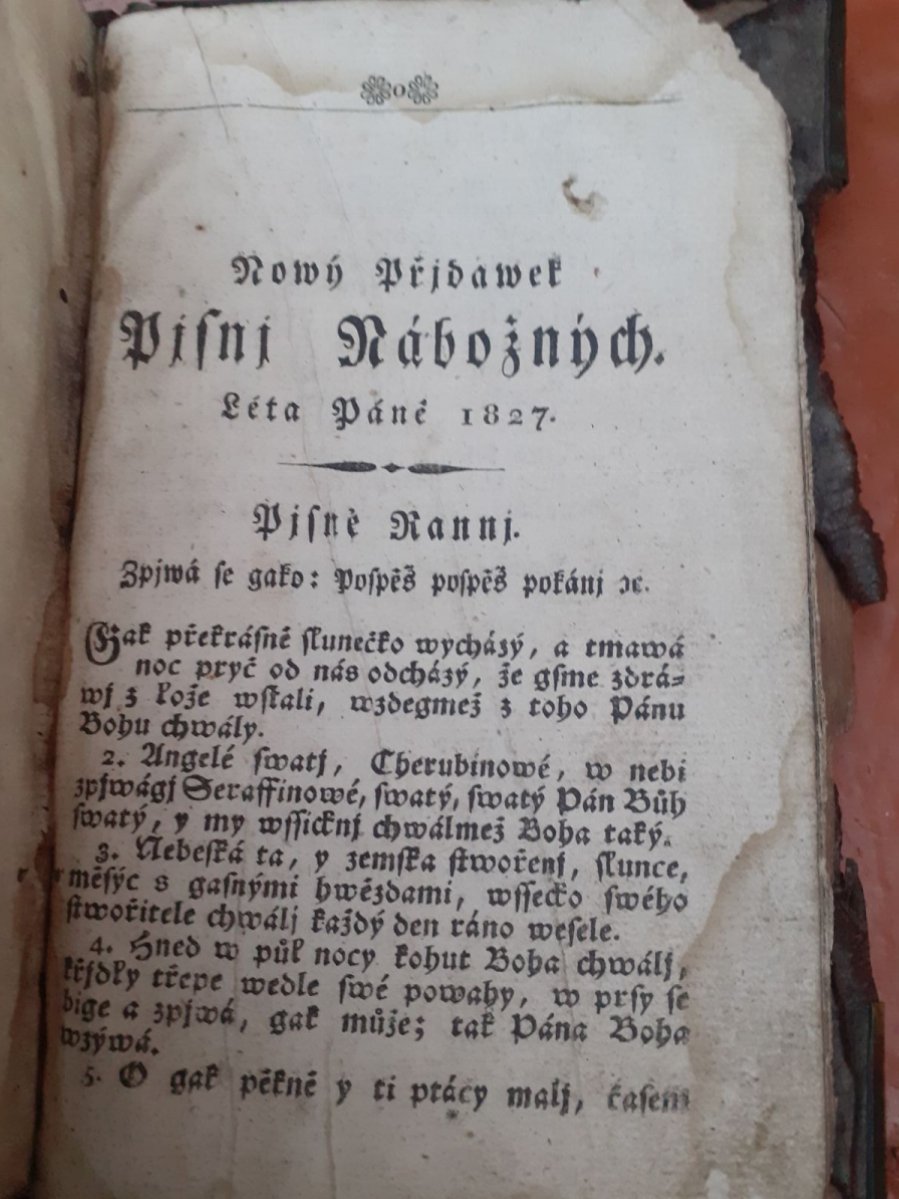 0
Nowý Přjdawek
Pjſnj Nábožných.
Léta Páně 1827.
Pjſně Rannj.
Zpjwá ſe gako: Poſpěš poſpěš pokánj ꝛc.
Gak překráſně ſlunečko wycházý, a tmawá
noc pryč od nás odcházý, že gſme zdrá⸗
wj z Lože wſtali, wzdegmež z toho Pánu
Bohu chwály.
2. Angelé ſwatj, Cherubinowé, w nebi
zpjwágj Seraffinowé, ſwatý, ſwatý Pán Bůh
ſwatý, y my wſſicknj chwálmež Boha taký.
3. Nebeſká ta, y zemſka ſtwořenj, ſlunce,
měſýc s gaſnými hwězdami, wſſecko ſwého
ſtwořitele chwálj každý den ráno weſele.
4. Hned w půl nocy kohut Boha chwálj,
křjdky třepe wedle ſwé powahy, w prſy ſe
bige a zpjwá, gak může; tak Pána Boha
wzýwá.
5. O gak pěkně y ti ptácy malj, čaſem